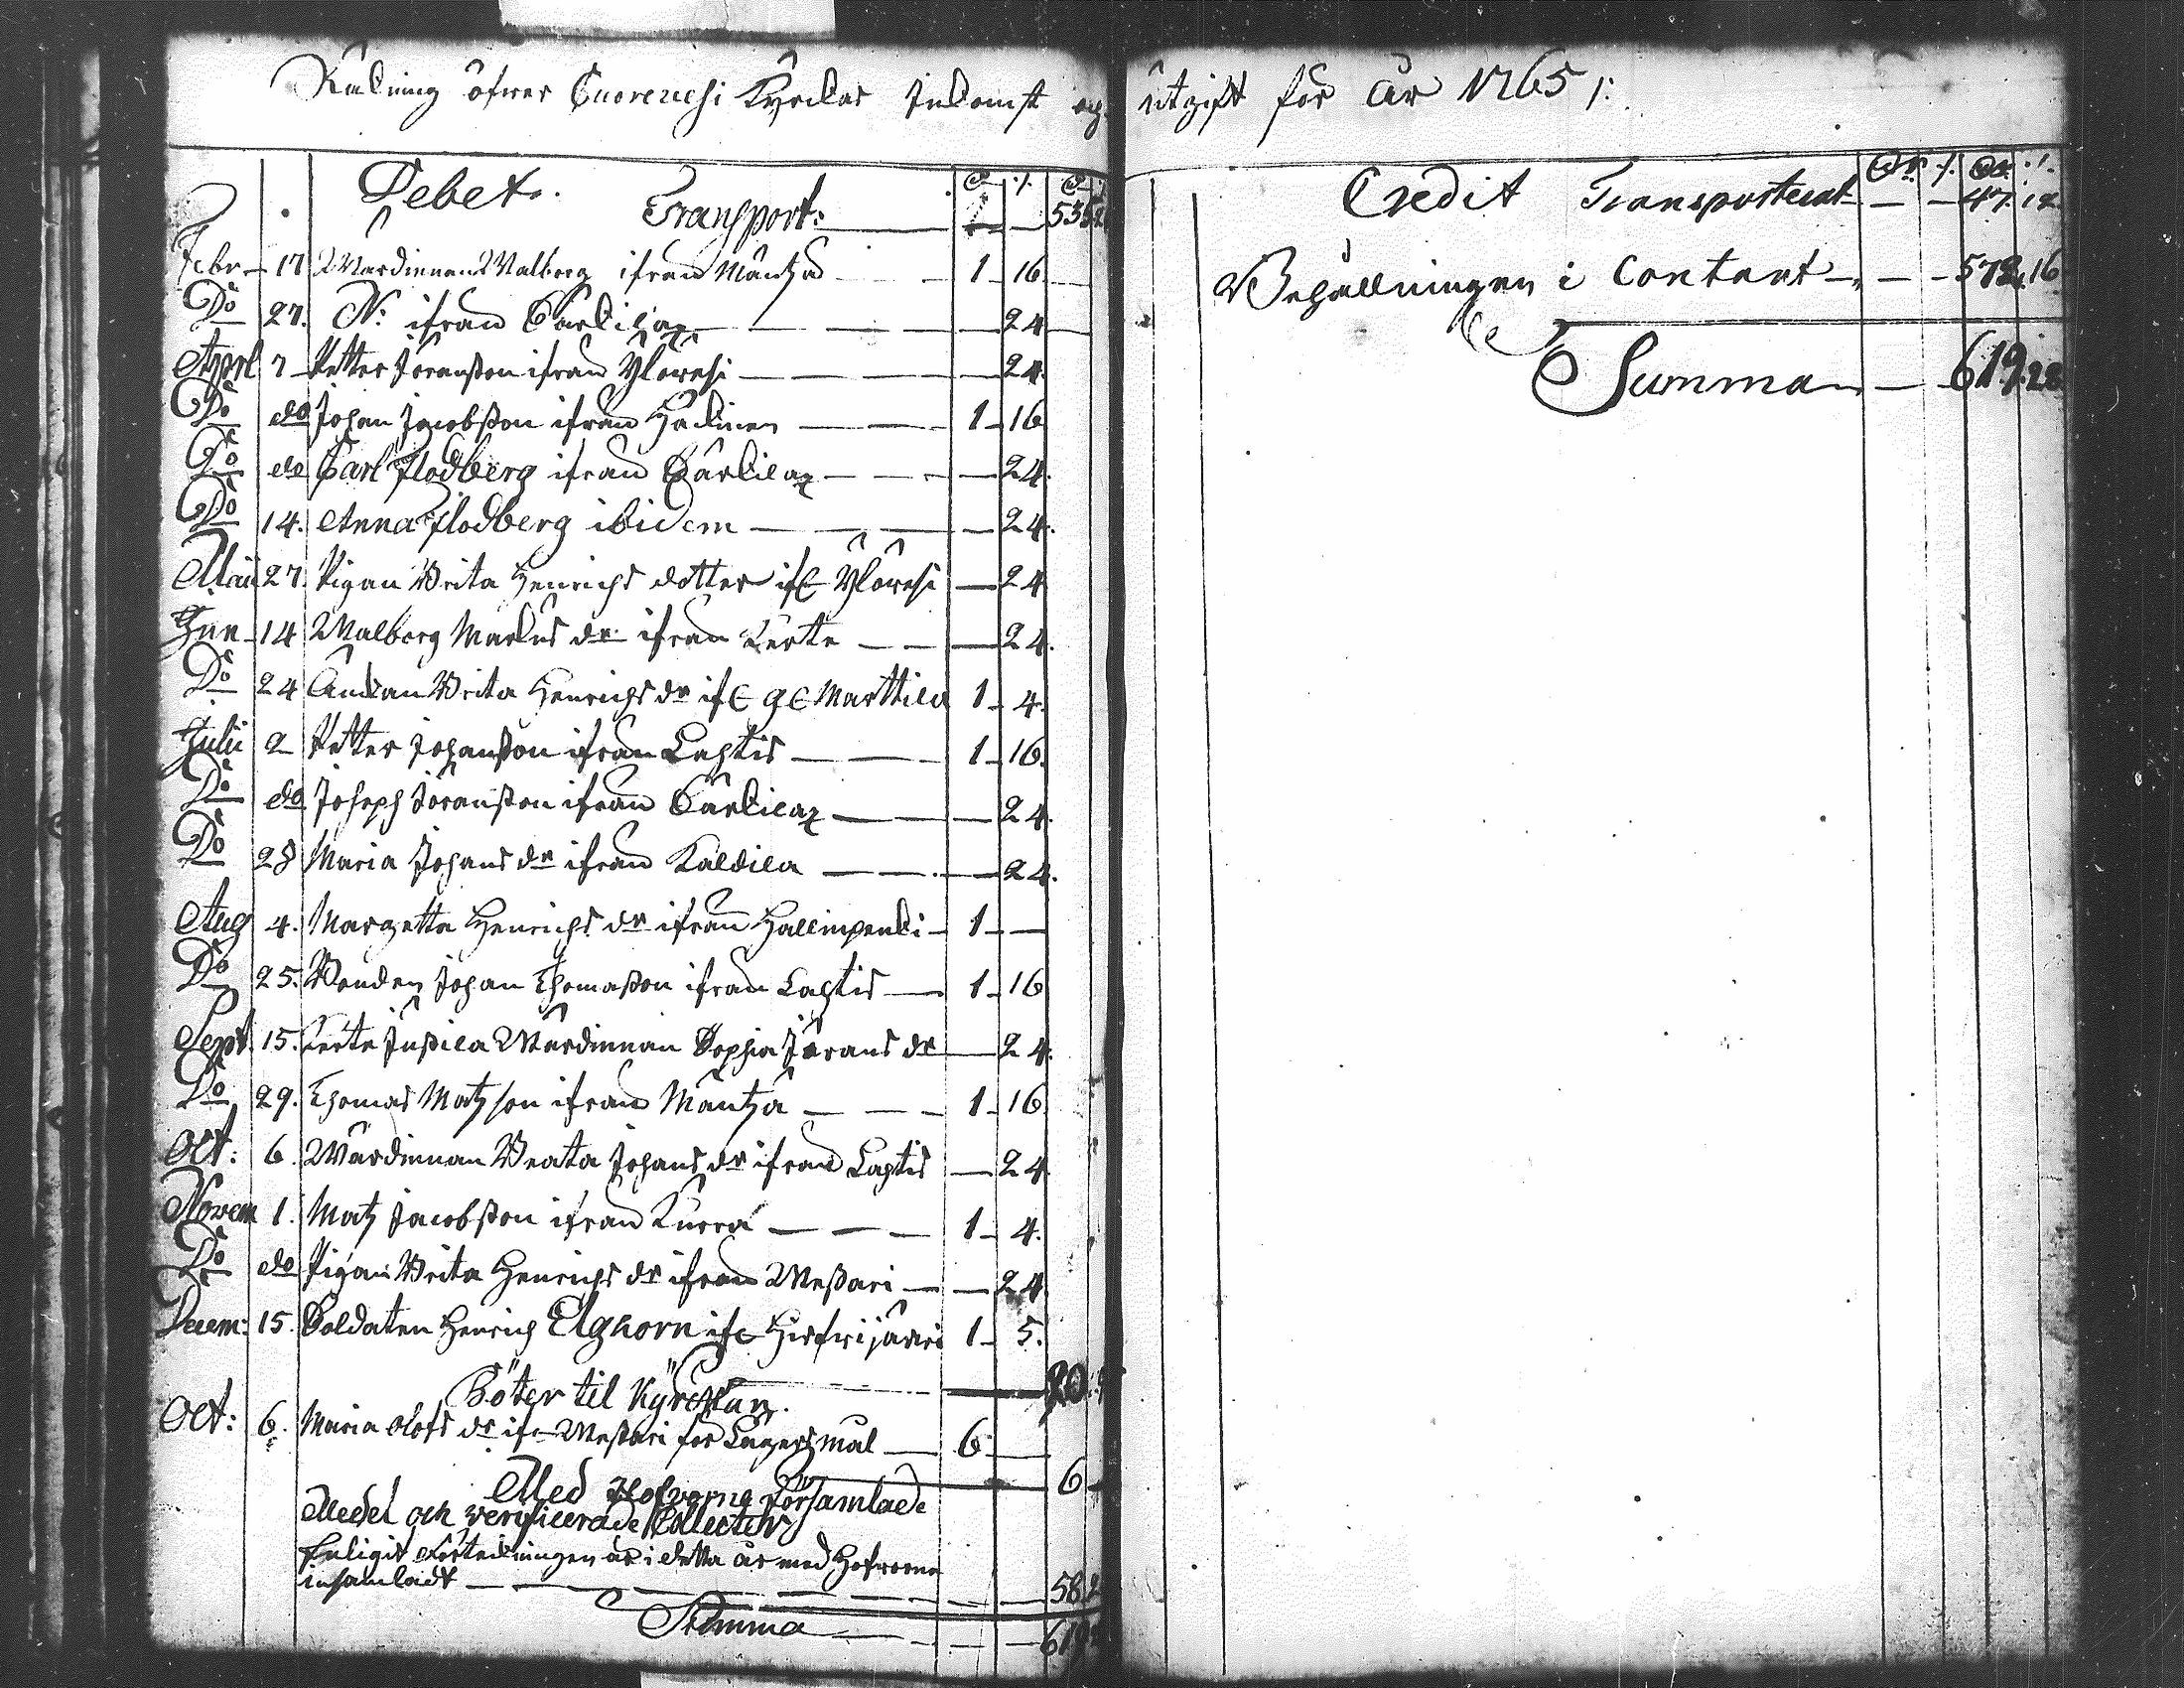 Räkning öfver Cuorevesi Kyrckas Inkomst og utgift för år 1765 /:
Debet.
Transport: 535 2
Febr 17 Wärdinnans Valborg ifrån Mäntzä 1 16
Do 27. N: ifrån Carlilax 24
Aprl 7 Petter Jöransson ifrån Ylöresi 24
Do do Johan Jacobsson ifrån Hackinen 1 16
Do do Carl Flodberg ifrån Cärlilax 24.
Do 14. Anna Flodberg ibidem 24.
Maii 27. Pigan Brita Henrichs dotter if: Ylöresi 24
Jun 14 Walborg Markus dr ifrån Kerte 24.
Do 24 Änckan Brita Henrichs dr if: G: Marttila 1 4.
Julii 2 Petter Johansson ifrån Lahtis 1 16.
Do do Joseph Jöransson ifrån Cärlilax 24.
Do 28 Maria Johans dr ifrån Kaldila 24.
Aug 4. Margetta Henrichs dr ifrån Hallinpenki 1
Do 25. Bonden Johan Thomasson ifrån Lahtis 1 16
Sept. 15. Kerte Jussila Wärdinnan Sophia Jörans dr 24.
Do 29. Thomas Matzson ifrån Mäntzä 1 16
Oct: 6. Wärdinnan Beata Johans dr ifrån Lahtis 24.
Novem 1. Matz Jacobsson ifrån Kurra 1 4.
Do do Pigan Brita Henrichs dr ifrån Messari 24
Decem: 15. Soldaten Henrich Elghorn if: Hirfwijärvi 1 5.
20.
Böter til Kyrckan.
Oct: 6. Maria Olofs dr if: Messari för Lägersmål 6
6
Med Hofvarne Församlade
Medel och verificerade Collecter
Enligit Förteckningen är i detta år med Hofvarna
insamladt 58 2
Summa 619
Credit Transporterat 47. 12
Behållningen i Contant 572. 16
Summa 619. 28